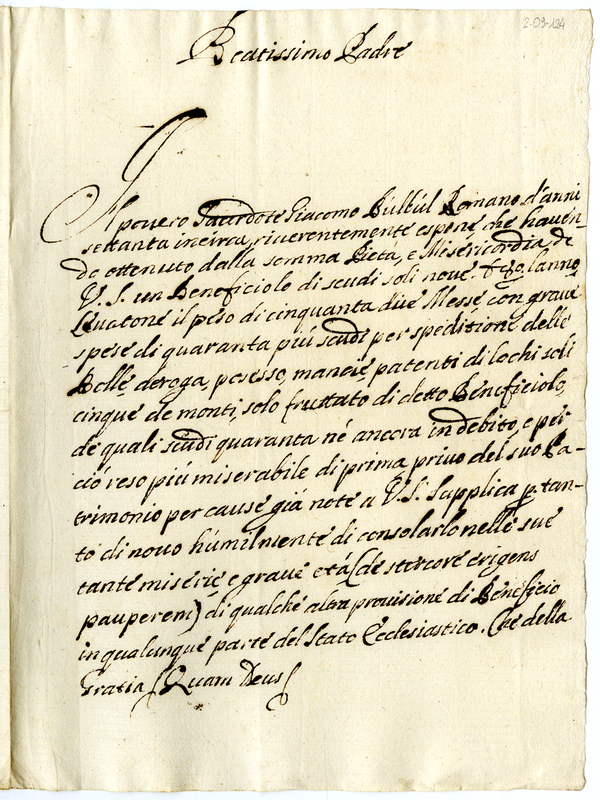 2-09-134
Beatissimo Padre
Il povero Sacerdote Giacomo Bulbul Romano d'anni
settanta incirca, riverentemente espone che haven-
do ottenuto dalla somma Pietà, e Misericordia di
V. S. un Beneficiolo di scudi soli nove l'anno,
levatone il peso di cinquanta due Messe con grave
spese di quaranta più scudi per speditione delle
Bolle, deroga, possesso, mancie, patenti di lochi soli
cinque de monti, solo fruttato di detto Beneficiolo,
de quali scudi quaranta né ancora in debito, e per
ciò reso più miserabile di prima, privo del suo Pa-
trimonio per cause già note a V. S. supplica p. tan-
to di novo húmilmente di consolarlo nelle sue
tante miserie, e grave età (de stercore erigens
pauperem) di qualche altra provisione di Beneficio
in qualunque parte del Stato Ecclesiastico. Che della
Gratia / Quam Deus /